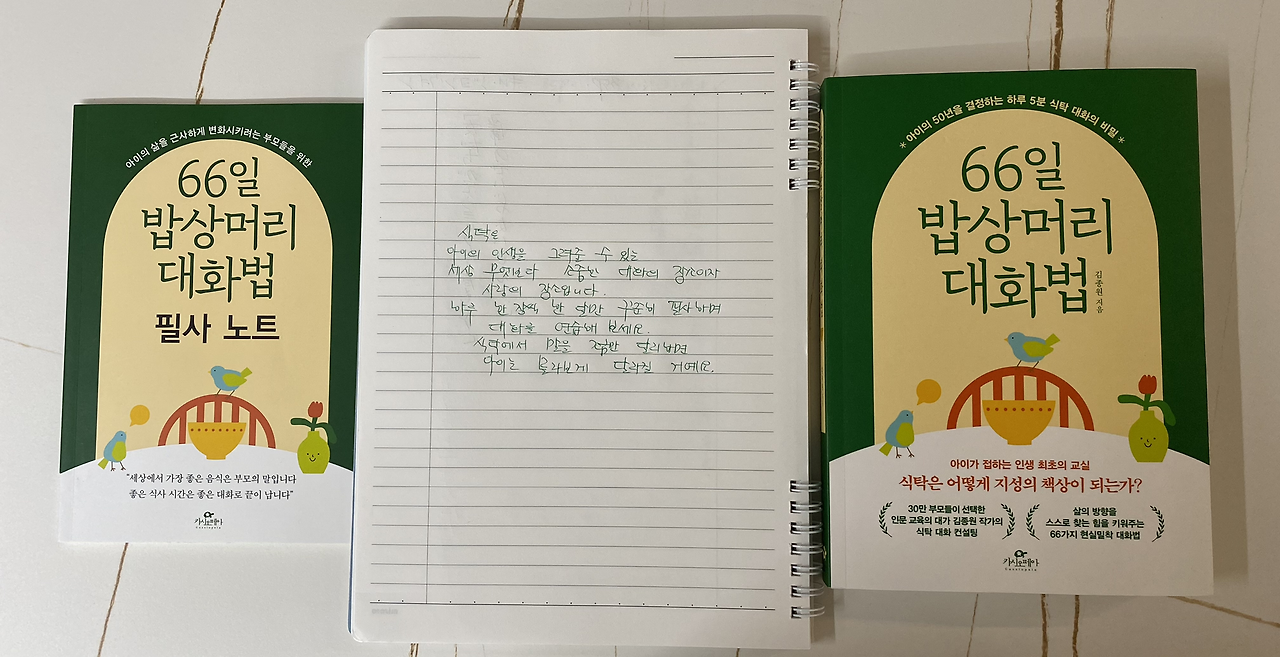 아이의 삶을 근사하게 변화시키려는 부모들을 위한
66일
밥상머리
대화법
필사 노트
“세상에서 가장 좋은 음식은 부모의 말입니다
좋은 식사 시간은 좋은 대화로 끝이 납니다”
카시오페아
Cassiopeia
식탁은
아이의 인생을 그려줄 수 있는
세상 무엇보다 소중한 대화의 장소이자
사랑의 장소입니다.
하루 한 장씩 한 달만 꾸준히 필사하며
대화를 연습해 보세요.
식탁에서 말을 조금만 달리하면
아이는 몰라보게 달라질 거예요.
* 아이의 50년을 결정하는 하루 5분 식탁 대화의 비밀 *
66일
밥상머리
대화법
김종원 지음
아이가 접하는 인생 최초의 교실
식탁은 어떻게 지성의 책상이 되는가?
30만 부모들이 선택한
인문 교육의 대가 김종원 작가의
식탁 대화 컨설팅
삶의 방향을
스스로 찾는 힘을 키워주는
66가지 현실밀착 대화법
카시오페아
Cassiopeia